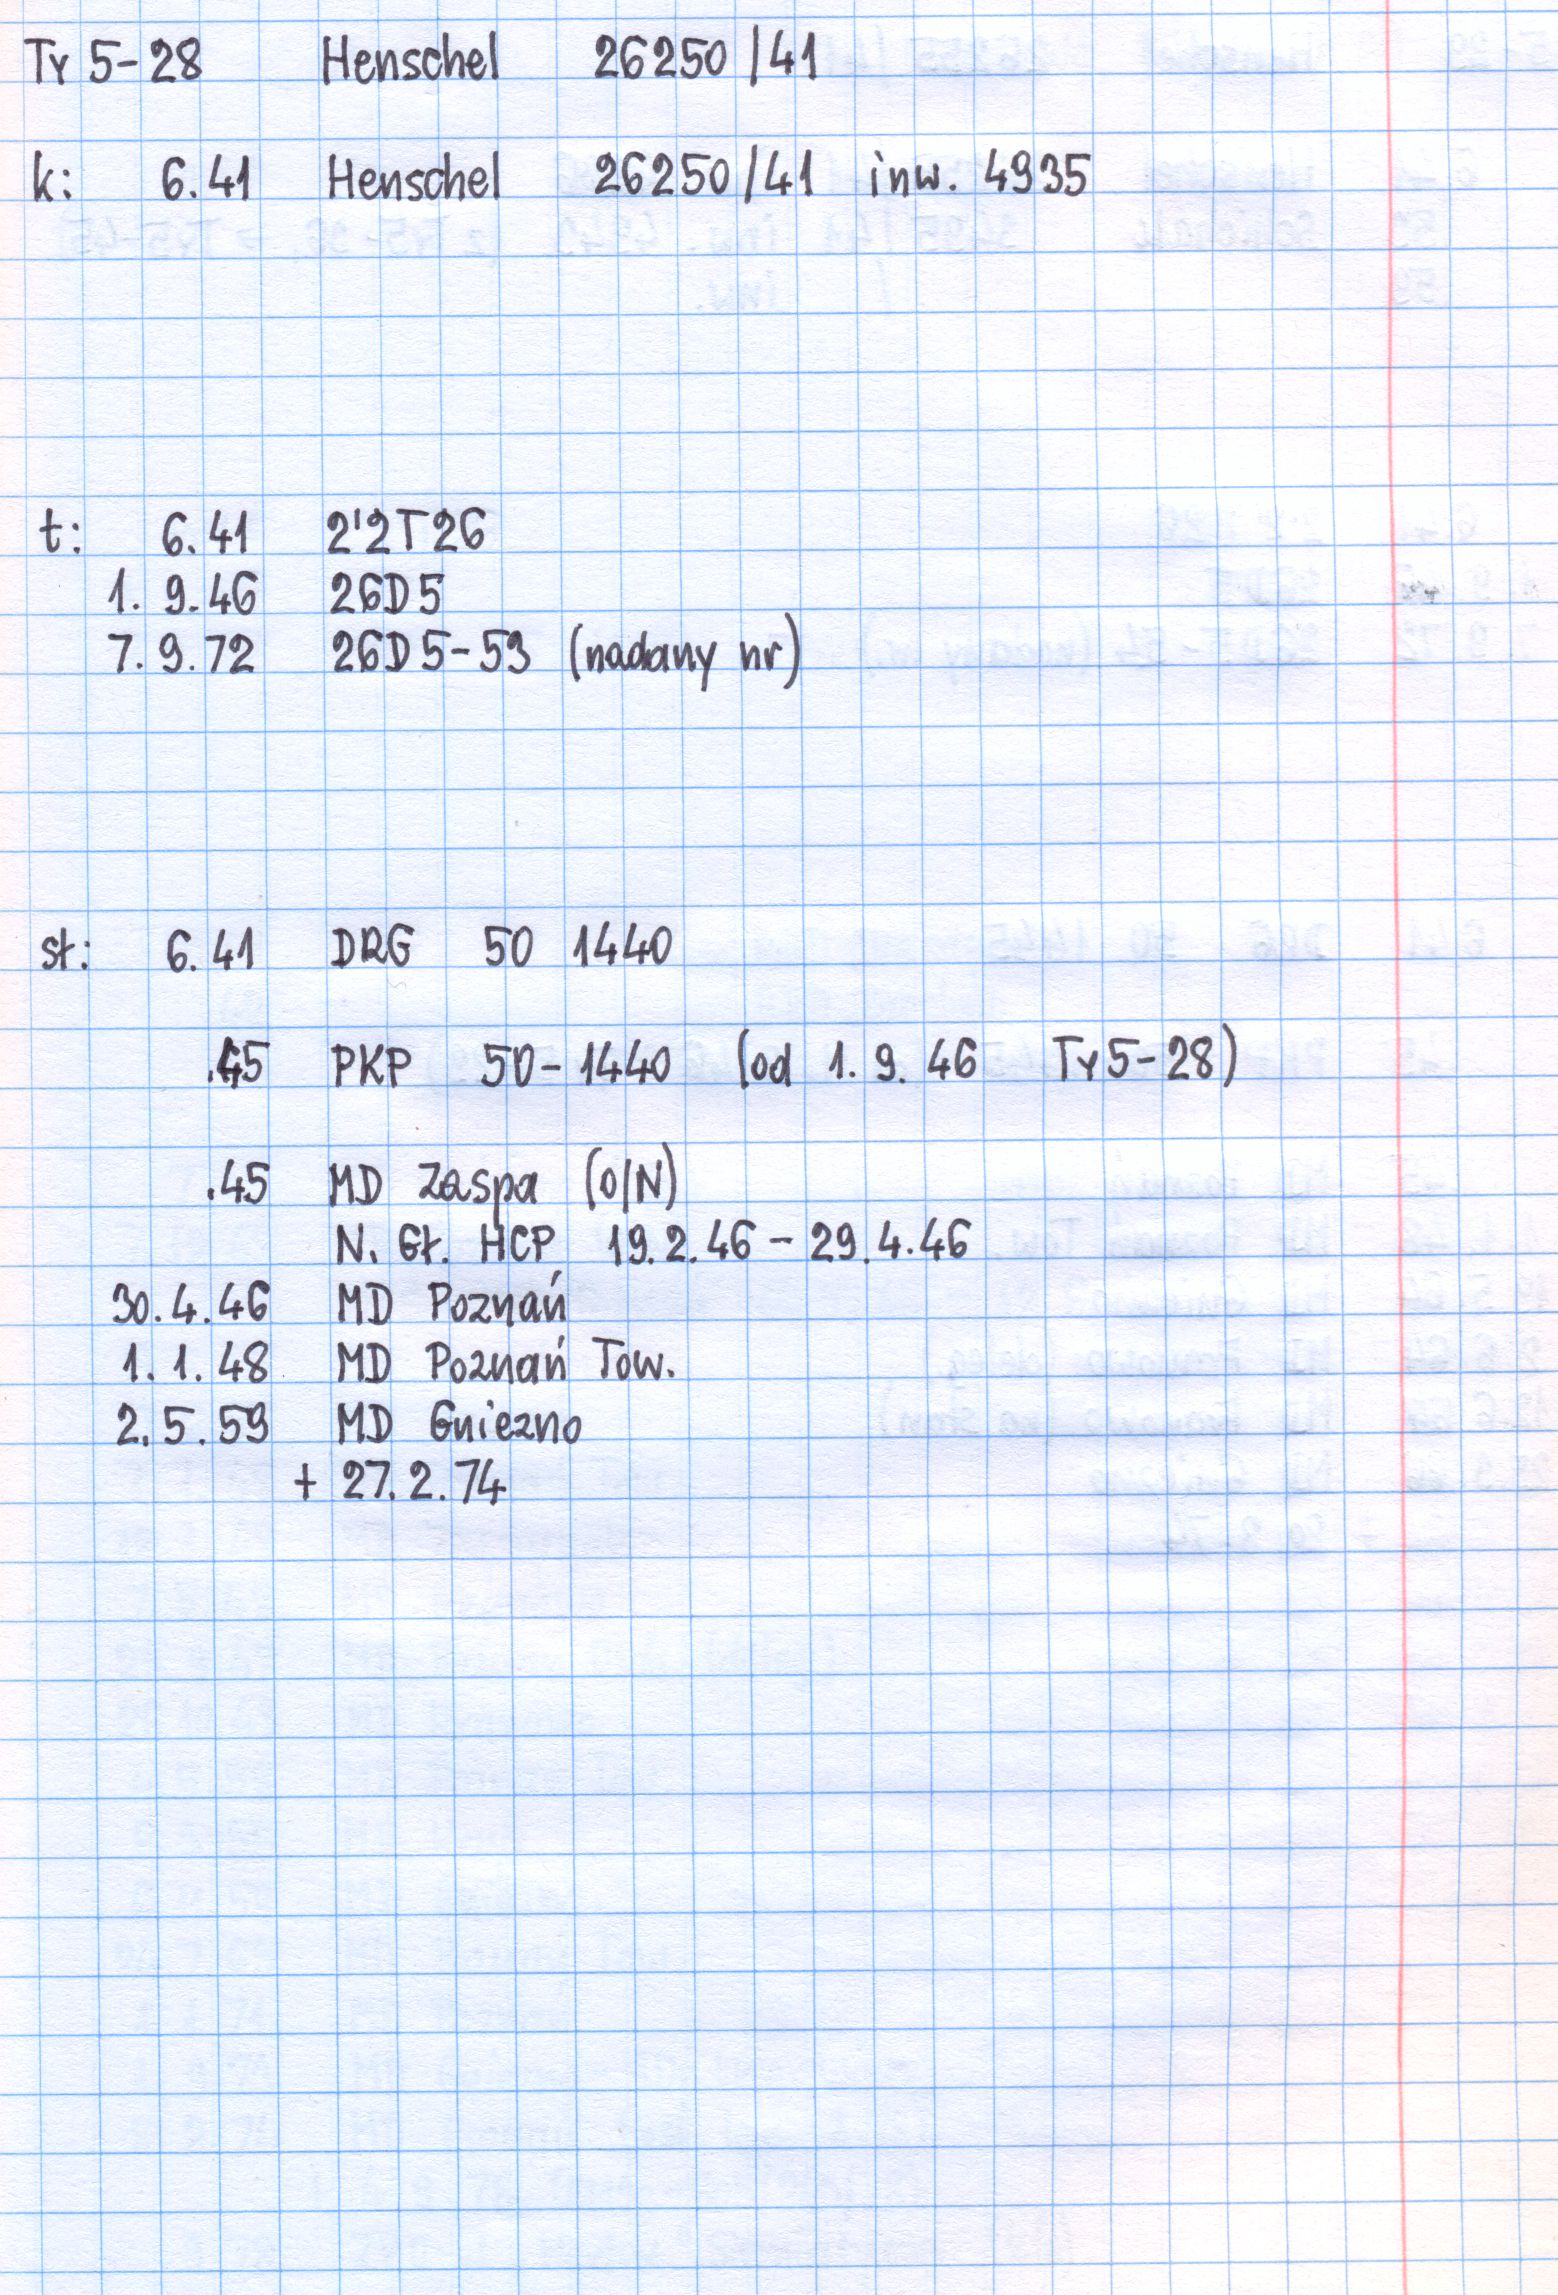 Ty 5-28 Henschel 26250/41
k: 6.41 Henschel 26250/41 inw. 4935
t: 6.41 2'2T26
1. 9.46 26D5
7. 9.72 26D5-53 (nadany nr)
st: 6.41 DRG 50 1440
.45 PKP 50-1440 (od 1. 9. 46 Ty5-28)
.45 MD Zaspa (O/N)
N. Gł. HCP 19.2.46 - 29.4.46
30.4.46 MD Poznań
1. 1.48 MD Poznań Tow.
2. 5.59 MD Gniezno
+ 27.2.74